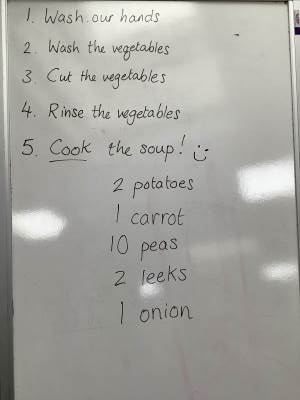 1. Wash our hands
2. Wash the vegetables
3. Cut the vegetables
4. Rinse the vegetables
5. Cook the soup!
2 potatoes
1 carrot
10 peas
2 leeks
1 onion